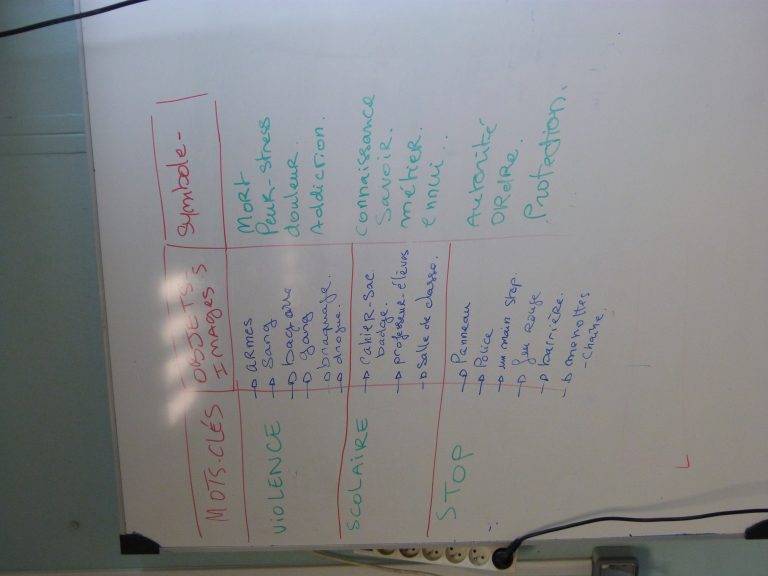 MOTS-CLÉS
OBJETS-
IMAGES.S
Symbole-
VIOLENCE
→ ARMES
→ Sang
→ bagarre
→ gang
→ braquage.
→ drogue.
MORT
Peur-stress
douleur.
Addiction.
SCOLAIRE
→ Cahier-sac
badge.
→ professeur-élèves
→ salle de classe.
connaissance
Savoir.
métier.
ennui...
STOP
→ Panneau
→ Police
→ un main stop.
→ feu rouge
→ barrière.
→ menottes
- chaîne.
Autorité
ORdRe.
Protection.